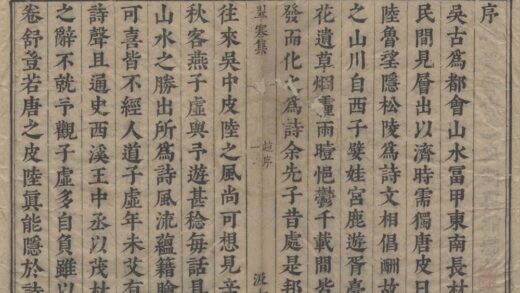 序
吳古爲都會山水冨甲東南長材
民間見層出以濟時需獨唐皮日
陸魯望隱松陵爲詩文相倡酬故
之山川自西子嬖娃宮鹿遊胥臺
花遺草烟霾雨曀悒鬱千載閒皆
發而化之爲詩余先子昔處是邦
翠寒集 趙序 一 汲
往來吳中皮陸之風尚可想見辛
秋客燕子虛與予遊甚稔每話具
山水之勝出所爲詩風流蘊籍瞻
可喜皆不經人道子虛年未艾有
詩聲且通史西溪王中丞以茂材
之辭不就予觀子虛多自負雖以
卷舒豈若唐之皮陸眞能隱於詩